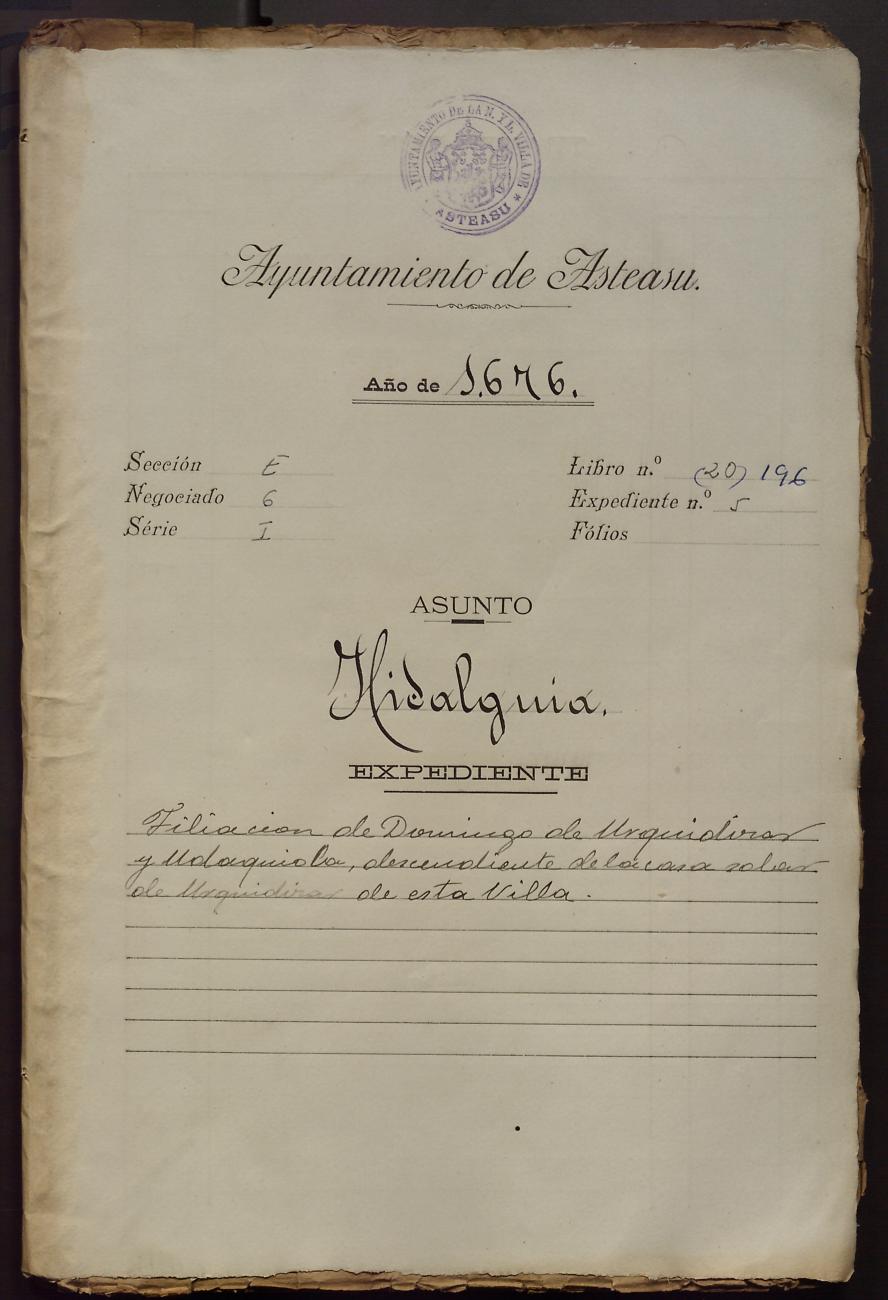 AYUNTAMIENTO DE LA N. Y L. VILLA DE
* ASTEASU *
Ayuntamiento de Asteasu.
Año de 1.676.
Sección E Libro n.º (20) 196
Negociado 6 Expediente n.º 5
Série I Fólios
ASUNTO
Hidalguia.
EXPEDIENTE
Filiacion de Domingo de Urquidirar
y Udaquiola, descendiente de la casa solar
de Urquidirar de esta Villa.